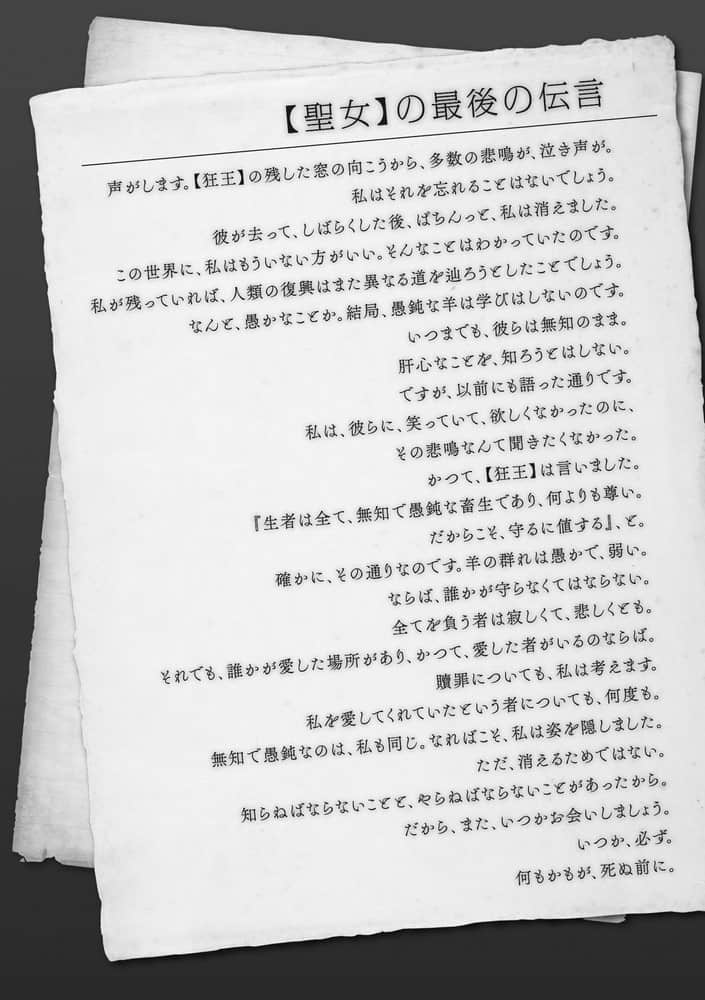 【聖女】の最後の伝言
声がします。【狂王】の残した窓の向こうから、多数の悲鳴が、泣き声が。
私はそれを忘れることはないでしょう。
彼が去って、しばらくした後、ぱちんっと、私は消えました。
この世界に、私はもういない方がいい。そんなことはわかっていたのです。
私が残っていれば、人類の復興はまた異なる道を辿ろうとしたことでしょう。
なんと、愚かなことか。結局、愚鈍な羊は学びはしないのです。
いつまでも、彼らは無知のまま。
肝心なことを、知ろうとはしない。
ですが、以前にも語った通りです。
私は、彼らに、笑っていて、欲しくなかったのに、
その悲鳴なんて聞きたくなかった。
かつて、【狂王】は言いました。
『生者は全て、無知で愚鈍な畜生であり、何よりも尊い。
だからこそ、守るに値する』、と。
確かに、その通りなのです。羊の群れは愚かで、弱い。
ならば、誰かが守らなくてはならない。
全てを負う者は寂しくて、悲しくとも。
それでも、誰かが愛した場所があり、かつて、愛した者がいるのならば。
贖罪についても、私は考えます。
私を愛してくれていたという者についても、何度も。
無知で愚鈍なのは、私も同じ。なればこそ、私は姿を隠しました。
ただ、消えるためではない。
知らねばならないことと、やらねばならないことがあったから。
だから、また、いつかお会いしましょう。
いつか、必ず。
何もかもが、死ぬ前に。